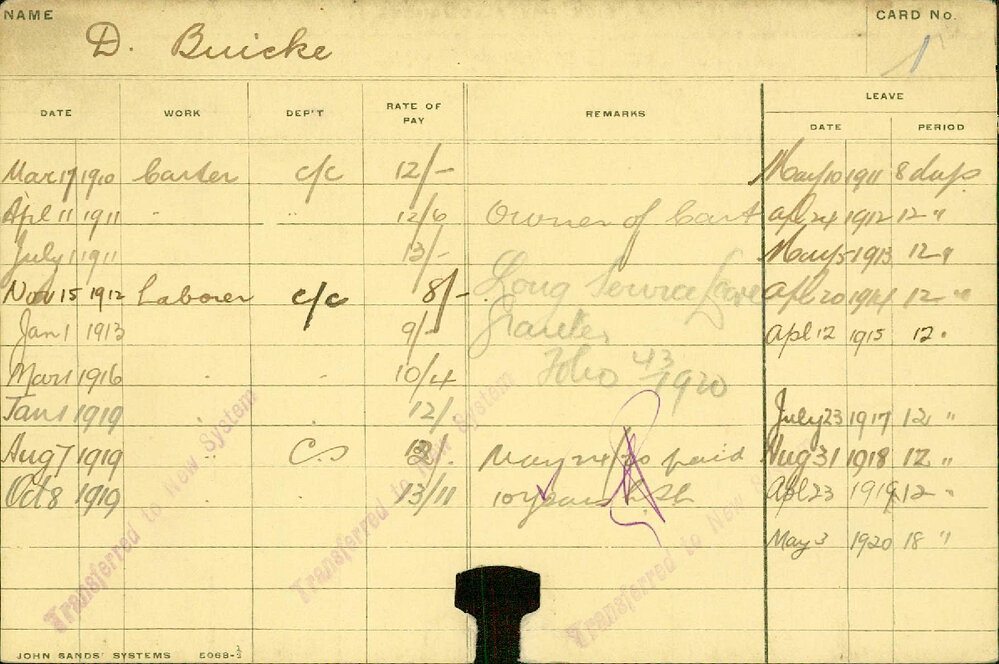 NAME CARD No.
D. Buicke 1
LEAVE
DATE WORK DEP'T RATE OF PAY REMARKS DATE PERIOD
Mar 17 1910 Carter c/c 12/- May 10 1911 8 days
Apl 11 1911 " " 12/6 Owner of Cart Apl 24 1912 12 "
July 1 1911 13/- May 5 1913 12 "
Nov 15 1912 Laborer c/c 8/- Long Service Leave Apl 20 1914 12 "
Jan 1 1913 9/- Granted Apl 12 1915 12 "
Mar 1 1916 " " 10/4 Folio 43/1920
Jan 1 1919 " 12/ July 23 1917 12 "
Aug 7 1919 " C.S May 24/20 paid Aug 31 1918 12 "
Oct 8 1919 13/11 10 years Apl 23 1919 12 "
May 3 1920 18 "
Transferred to New System
Transferred to New System
Transferred to New S
JOHN SANDS' SYSTEMS 5068-½